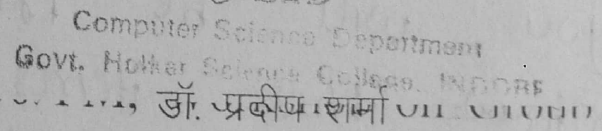 Computer Science Department
Govt. Holkar Science College, INDORE
डॉ. प्रदीप शर्मा